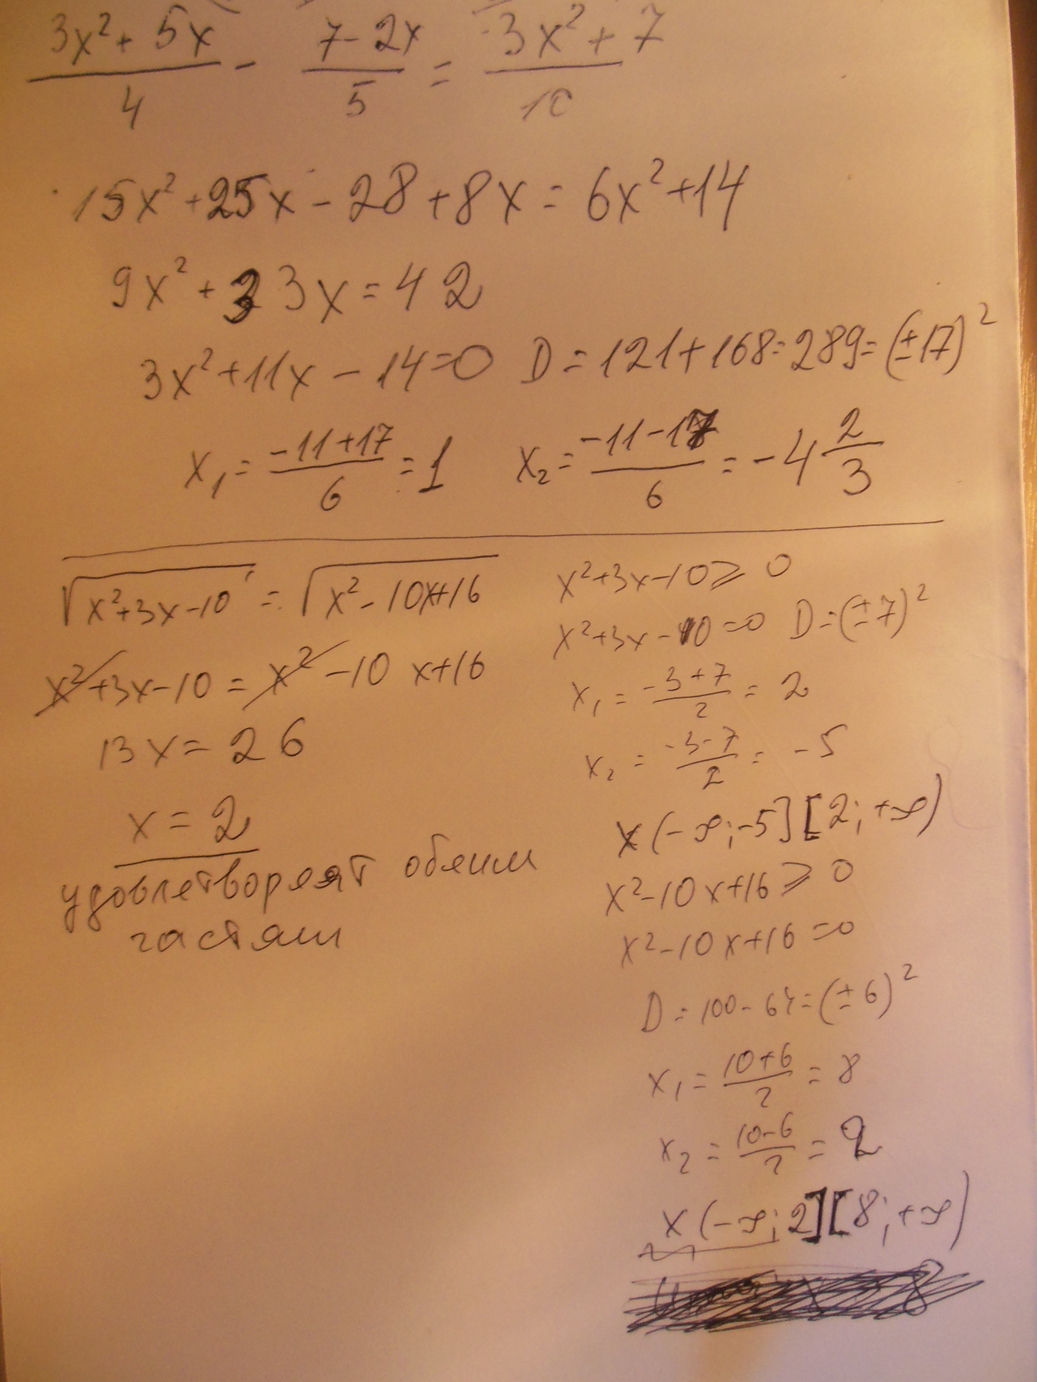 (3x² + 5x)/4 - (7-2x)/5 = (3x² + 7)/10
15x² + 25x - 28 + 8x = 6x² + 14
9x² + 33x = 42
3x² + 11x - 14 = 0 D = 121 + 168 = 289 = (±17)²
x₁ = (-11+17)/6 = 1 x₂ = (-11-17)/6 = -4 2/3
√(x²+3x-10) = √(x²-10x+16)
x²+3x-10 = x²-10x+16
13x = 26
x = 2
удовлетворяят обеим
частям
x²+3x-10 ⩾ 0
x²+3x-10 = 0 D = (±7)²
x₁ = (-3+7)/2 = 2
x₂ = (-3-7)/2 = -5
x (-∞; -5] [2; +∞)
x²-10x+16 ⩾ 0
x²-10x+16 = 0
D = 100-64 = (±6)²
x₁ = (10+6)/2 = 8
x₂ = (10-6)/2 = 2
x (-∞; 2] [8; +∞)